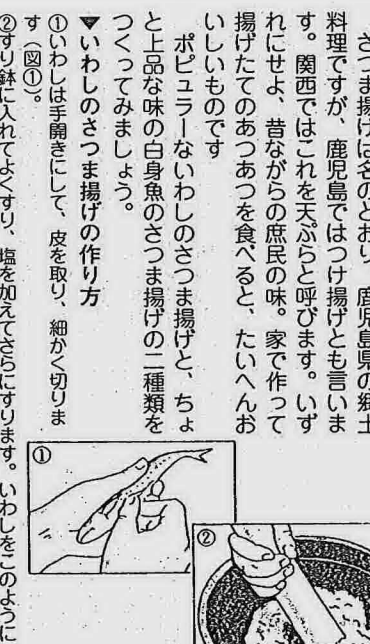 さつま揚げは名のとおり、鹿児島県の郷土
料理ですが、鹿児島ではつけ揚げとも言いま
す。関西ではこれを天ぷらと呼びます。いず
れにせよ、昔ながらの庶民の味。家で作って
揚げたてのあつあつを食べると、たいへんお
いしいものです
ポピュラーないわしのさつま揚げと、ちょ
と上品な味の白身魚のさつま揚げの二種類を
つくってみましょう。
▼いわしのさつま揚げの作り方
①いわしは手開きにして、皮を取り、細かく切りま
す（図①）。
②すり鉢に入れてよくすり、塩を加えてさらにすります。いわしをこのように
①
②